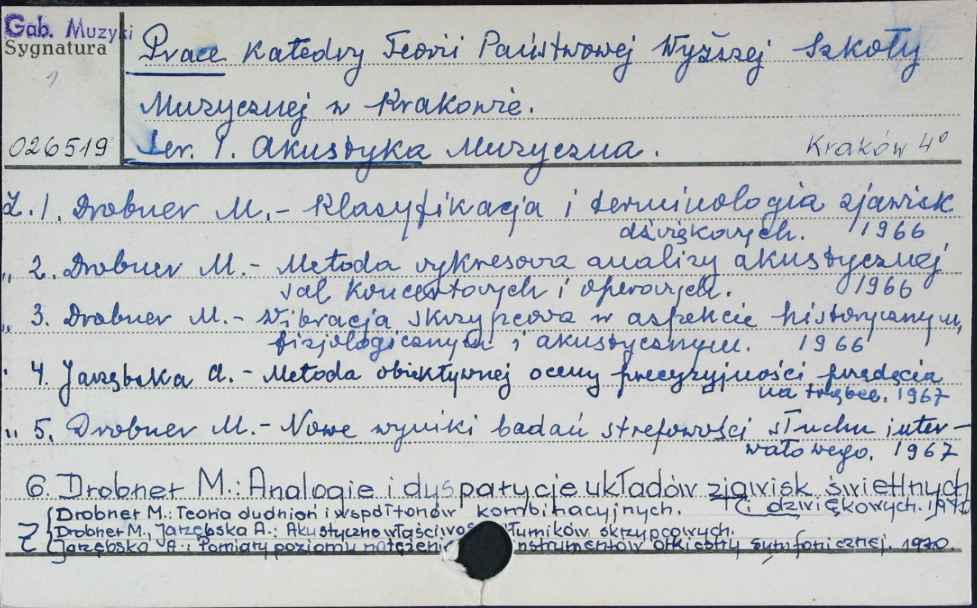 Gab. Muzyki
Sygnatura
1
026519
Prace Katedry Teorii Państwowej Wyższej Szkoły
Muzycznej w Krakowie.
Ser. I. Akustyka Muzyczna.
Kraków 4°
Z. 1. Drobner M. - Klasyfikacja i terminologia zjawisk
dźwiękowych. 1966
„ 2. Drobner M. - Metoda wykresowa analizy akustycznej
sal koncertowych i operowych. 1966
„ 3. Drobner M. - Wibracja skrzypcowa w aspekcie historycznym,
fizjologicznym i akustycznym. 1966
" 4. Jarzębska A. - Metoda obiektywnej oceny precyzyjności zadęcia
na trąbce. 1967
„ 5. Drobner M. - Nowe wyniki badań strefowości słuchu inter-
wałowego. 1967
6. Drobner M.: Analogie i dyspartycje układów zjawisk świetlnych
i dźwiękowych. 1970
7 Drobner M.: Teoria dudnień i współtonów kombinacyjnych.
Drobner M., Jarzębska A.: Akustyczne tłumików skrzypcowych.
Jarzębska A.: Pomiary poziomu instrumentów orkiestry symfonicznej. 1970.